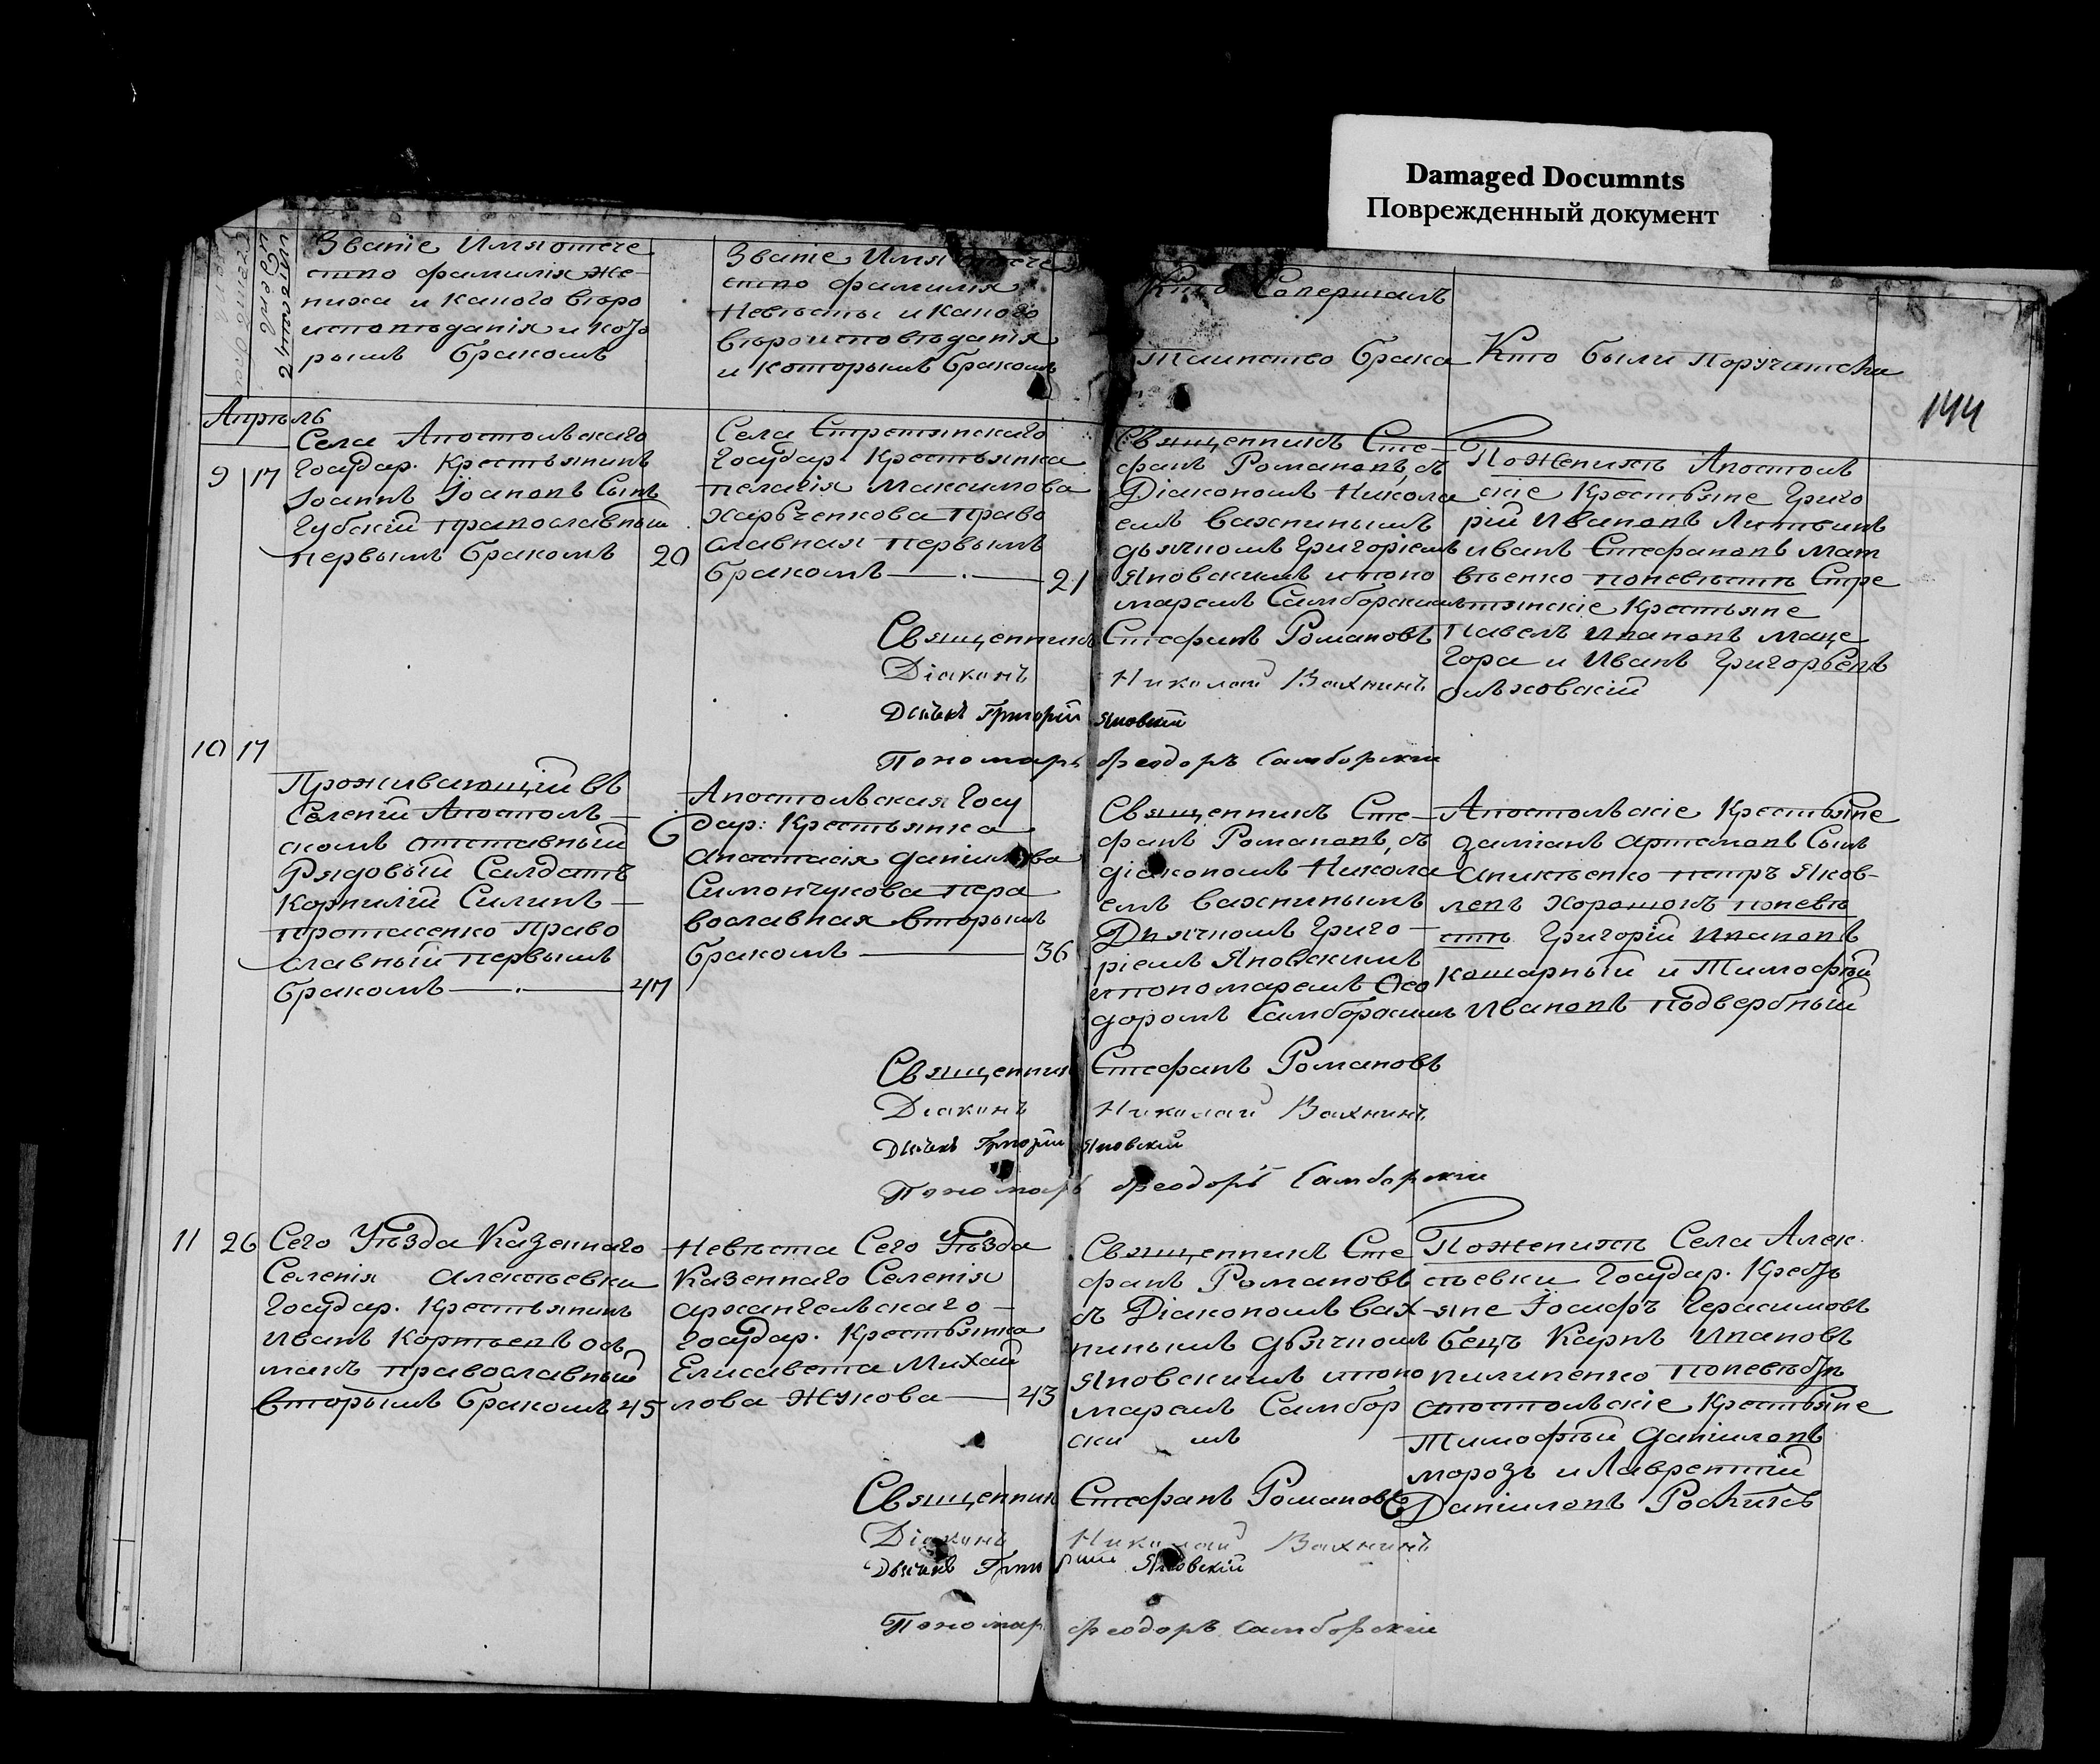 Damaged Documnts
Поврежденный документ
144
Званіе Имя отече
ство фамилия же-
ниха и какого вѣро
исповѣданія и кото
рымъ бракомъ
Званіе Имя отече
ство фамилия
Невѣсты и какого
вѣроисповѣданія
и которымъ бракомъ
Кто Совершалъ
таинство брака
Кто были поручители
Апрѣль
9 17
Села Апостольскаго
Государ. Крестьянинъ
Іоаннъ Іоановъ Сынъ
Губскій православный
первымъ бракомъ 20
Села Стретинскаго
Государ. Крестьянка
пелагія Максимова
Харьченкова право
славная первымъ
бракомъ —·— 21
Священникъ Сте-
фанъ Романовъ, съ
Діакономъ Никола
емъ Вахнинымъ
дьячкомъ Григоріемъ
Яновскимъ и поно
маремъ Самборскимъ
По Женихѣ Апостол
скіе Крестьяне Григо
рій Ивановъ Литвинъ
Иванъ Стефановъ Мат
вѣенко по невѣстѣ Стре
тинскіе Крестьяне
Павелъ Ивановъ Маце
гора и Иванъ Григорьевъ
Ольховскій
Священникъ Стефанъ Романовъ
Діаконъ Николай Вахнинъ
Дьячекъ Григорій Яновскій
Пономарь Феодоръ Самборскій
10 17
Проживающій въ
Селеніи Апостоль-
скомъ отставный
Рядовый Салдатъ
Корнилій Силинъ —
Протасенко Право
славный первымъ
бракомъ —·— 47
Апостольская Госу
дар: Крестьянка
Анастасія Даніилова
Симончукова пра
вославная вторымъ
бракомъ — 36
Священникъ Сте-
фанъ Романовъ, съ
діакономъ Никола
емъ Вахнинымъ
Дьячкомъ Григо-
ріемъ Яновскимъ
и пономаремъ Фео
доромъ Самборскимъ
Апостольскіе Крестьяне
Даміанъ Артемовъ Сынъ
Аникѣенко петръ Яков-
левъ Хорошокъ по невѣ
стѣ Григорій Ивановъ
Кошарный и Тимофей
Ивановъ Подвербный
Священник Стефанъ Романовъ
Діаконъ Николай Вахнинъ
Дьячекъ Григорій Яновскій
Пономарь Феодоръ Самборскій
11 26
Сего Уѣзда Казеннаго
Селенія Алексѣевки
Государ. Крестьянинъ
Иванъ Корнѣевъ Ось
макъ православный
вторымъ бракомъ 45
Невѣста Сего Уѣзда
Казеннаго Селенія
Архангельскаго —
Государ. Крестьянка
Елисавета Михай
лова Жукова — 43
Священникъ Сте
фанъ Романовъ
съ Діакономъ Вах-
нинымъ дьячкомъ
Яновскимъ и поно
маремъ Самбор
ски мъ
По женихѣ Села Алек-
сѣевки Государ. Кресть
яне Іосифъ Герасимовъ
бецъ Карпъ Ивановъ
пилипенко по невѣстѣ
Апостольскіе Крестьяне
Тимофѣй Даніиловъ
морозъ и Лаврентій
Даніиловъ
Священник Стефанъ Романовъ
Діаконъ Николай Вахнинъ
Дьячекъ Григорій Яновскій
Пономар Феодоръ Самборскій